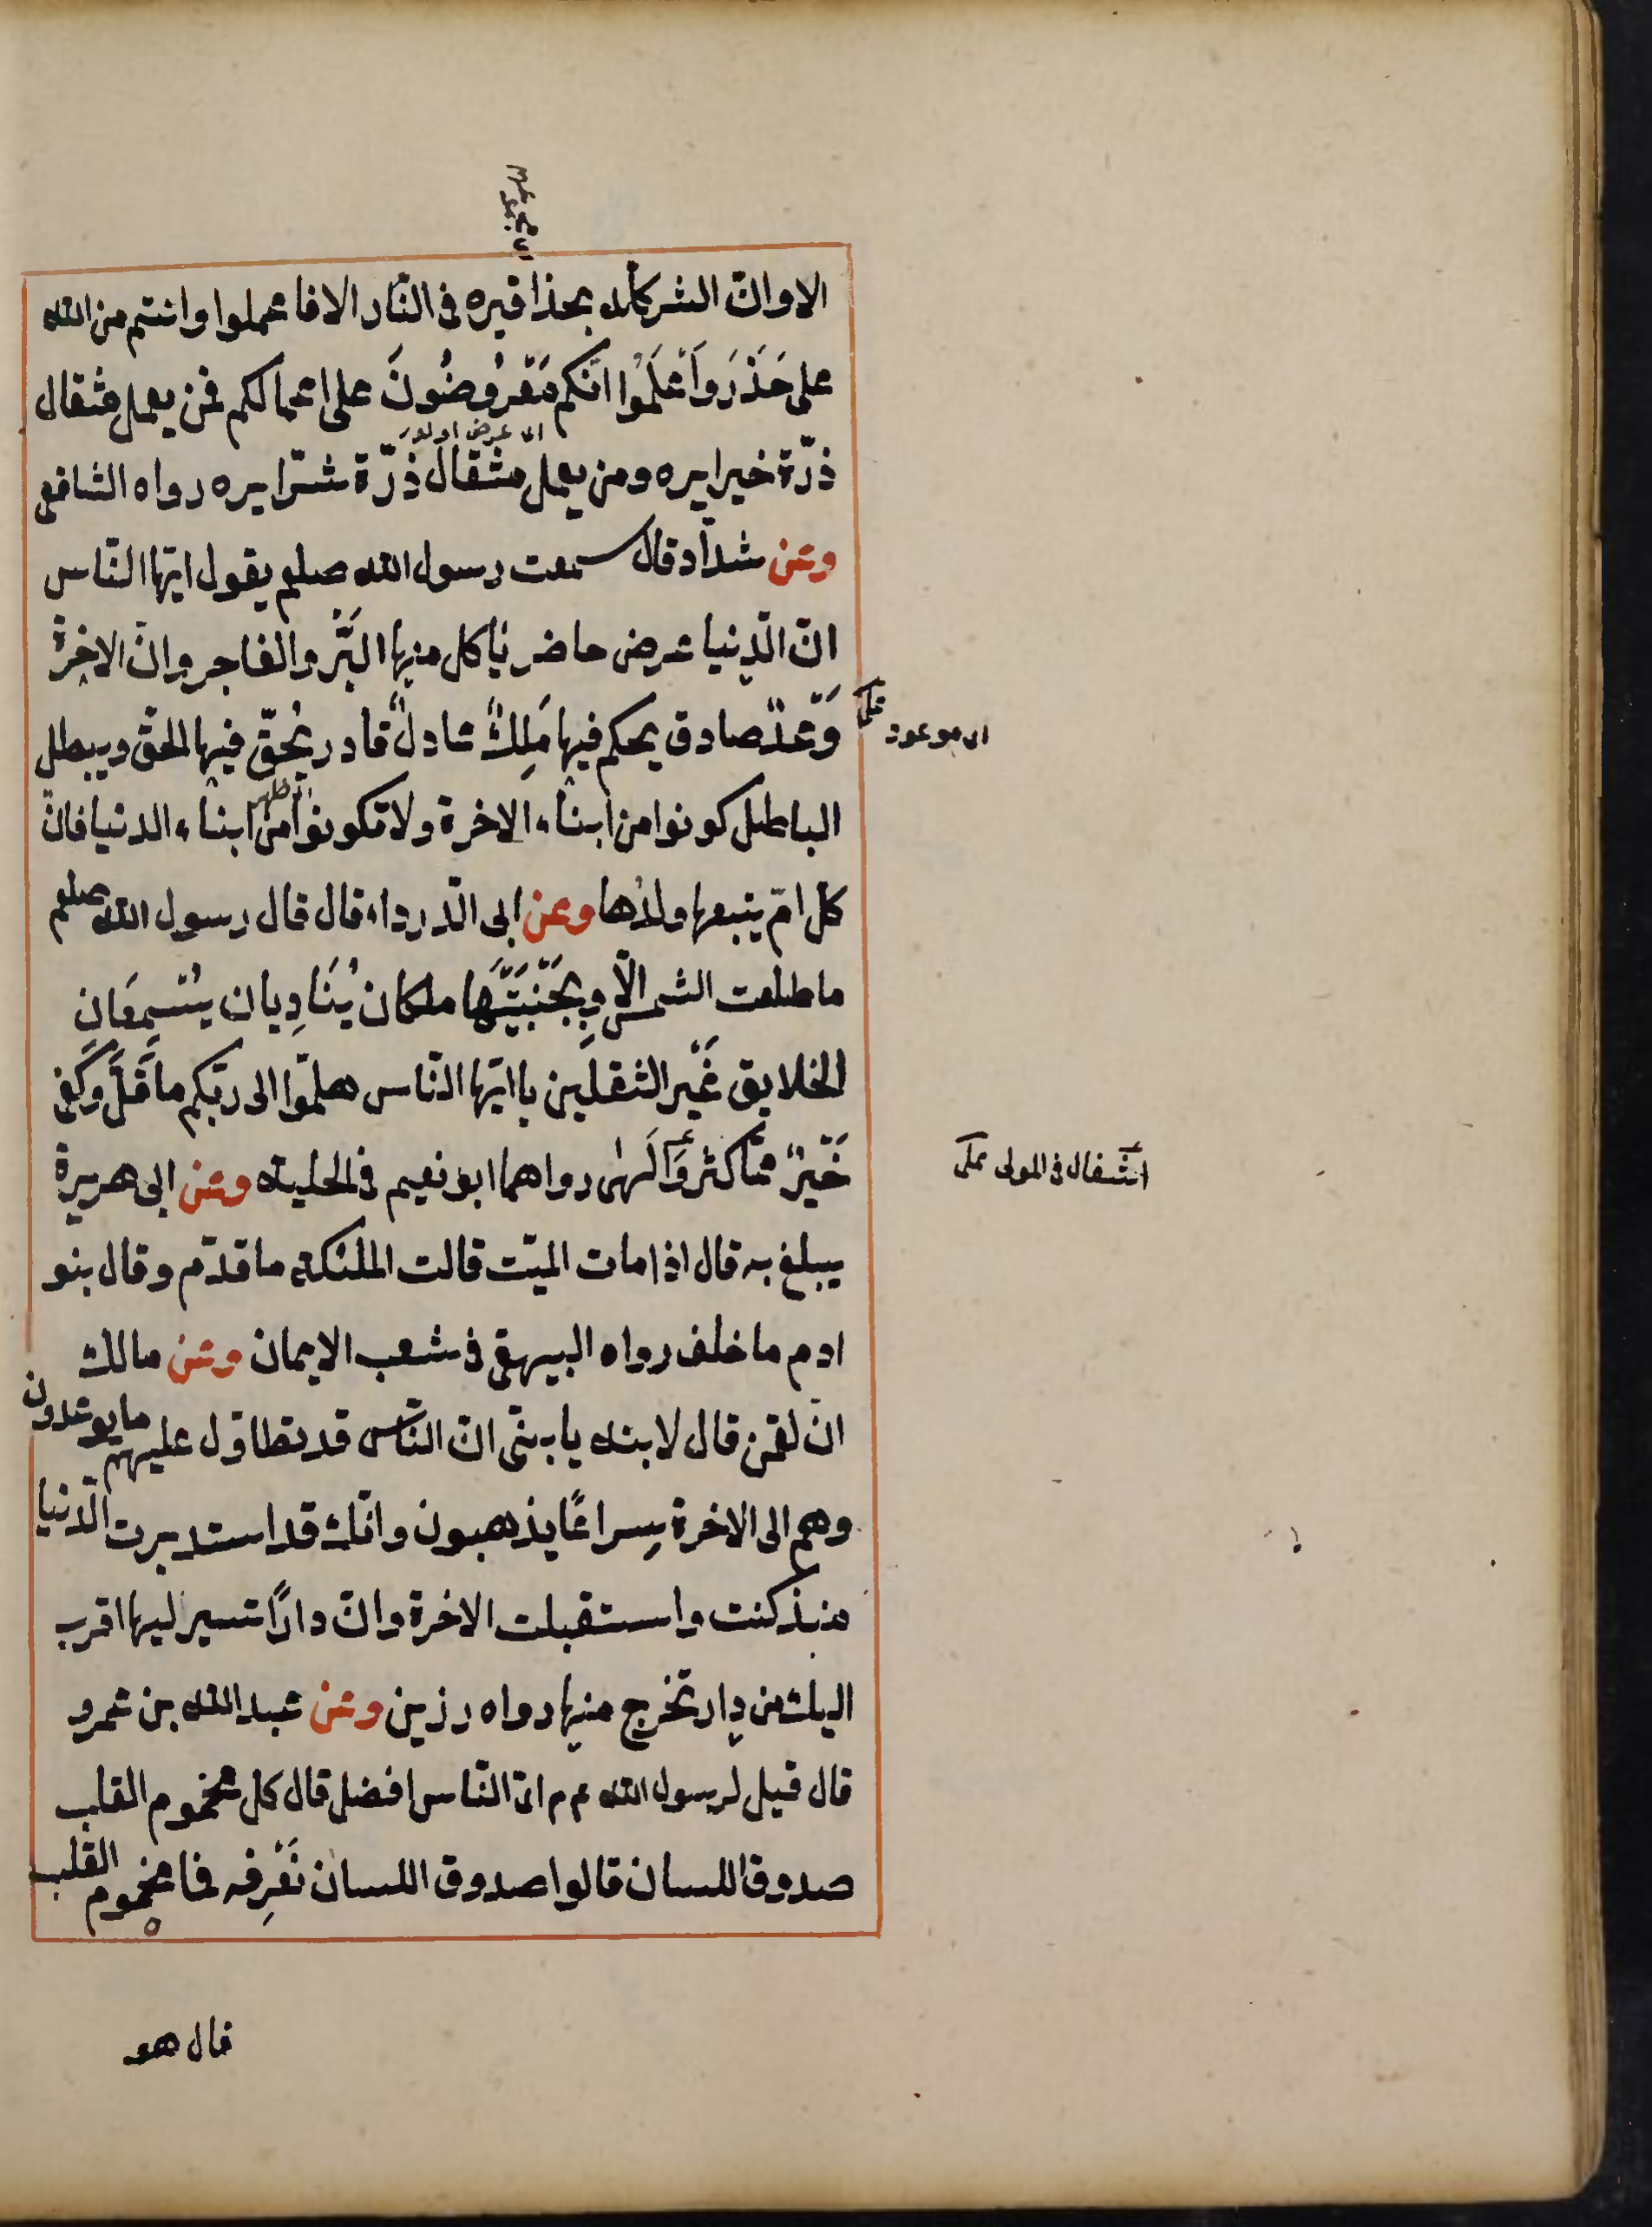 الا وانّ الشر كله بحذافيره فى النّار الا فاعملوا وانتم من الله
على حَذَرٍ وَاعْلَمُوا انّكم مَعْرُوضُونَ على اعمالكم فمن يعمل مثقال
ذرّة خيرا يره ومن يعمل مثقال ذرّة شرّا يره رواه الشافعى
وعن شدّاد قال سمعت رسول الله صلعم يقول ايّها النّاس
انّ الدّنيا عرض حاضر يأكل منها البَرُّ والفاجر وانّ الاخرة
وَعْدٌ صادق يحكم فيها مَلِكٌ عادلٌ قادر يُحِقّ فيها الحقّ ويبطل
الباطل كونوا من ابناء الاخرة ولا تكونوا من ابناء الدنيا فانّ
كلّ امّ يتبعها ولدُها وعن ابى الدّرداء قال قال رسول الله صلعم
ما طلعت الشمس الّا وبِجَنْبَتَيْهَا ملكان يُنَادِيان يُسْمِعَانِ
الخلايق غَيْرَ الثقلين يا ايّها النّاس هلمّوا الى ربّكم ما قَلَّ وكَفى
خَيْرٌ ممّا كثر وَاَلْهٰى رواهما ابو نعيم فى الحلية وعن ابى هريرة
يبلغ به قال اذا مات الميّت قالت الملئكة ما قدّم وقال بنو
ادم ما خلف رواه البيهقى فى شعب الايمان وعن مالك
انّ لقمن قال لابنه يا بنىّ انّ النّاس قد تطاول عليهم ما يوعدون
وهم الى الاخرة سِراعًا يذهبون وانّك قد استدبرت الدّنيا
منذ كنت واستقبلت الاخرة وانّ دارًا تسير اليها اقرب
اليك من دار تخرج منها رواه رزين وعن عبد الله بن عمرو
قال قيل لرسول الله عم اىّ النّاس افضل قال كل مخموم القلب
صدوق اللسان قالوا صدوق اللسان نَعْرِفه فما مخموم القلب
اى موعود
اشغال فى المولى
قال هو